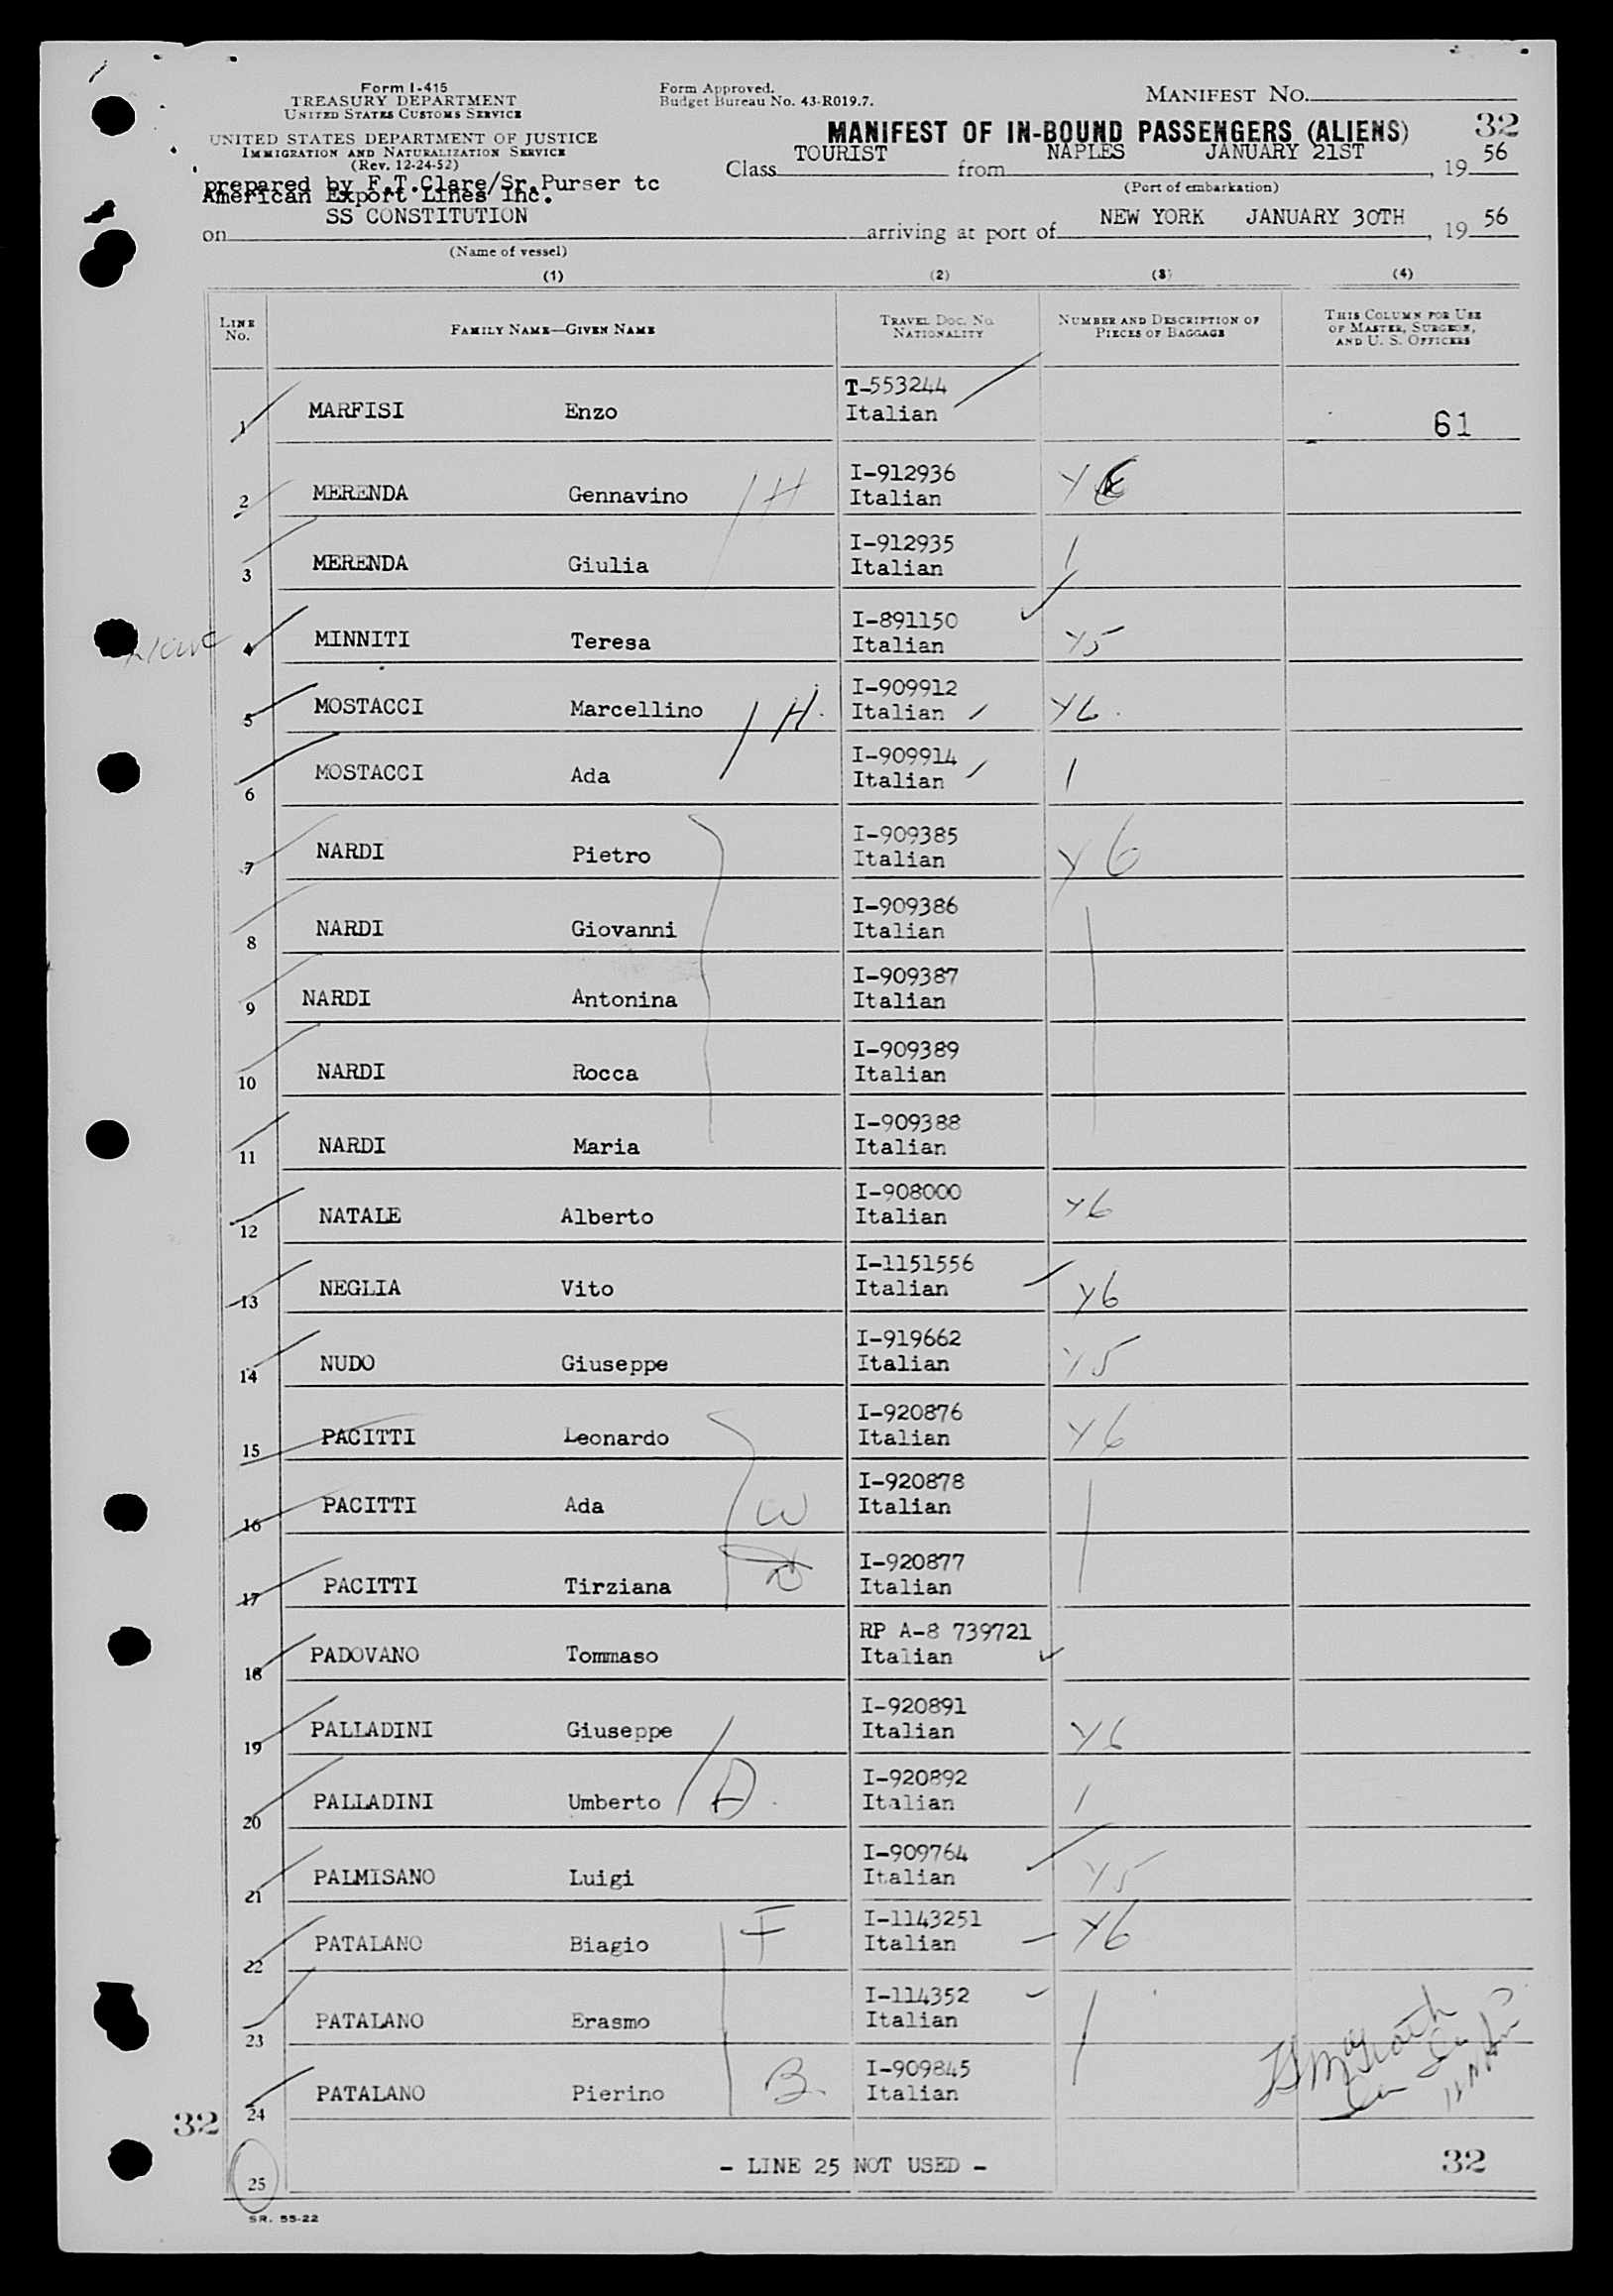 Form I-415
TREASURY DEPARTMENT
UNITED STATES CUSTOMS SERVICE
UNITED STATES DEPARTMENT OF JUSTICE
IMMIGRATION AND NATURALIZATION SERVICE
(Rev. 12-24-52)
prepared by F.T.Clare/Sr.Purser tc
American Export Lines Inc.
Form Approved.
Budget Bureau No. 43-R019.7.
MANIFEST NO.
MANIFEST OF IN-BOUND PASSENGERS (ALIENS) 32
Class TOURIST from NAPLES JANUARY 21ST, 19 56
(Port of embarkation)
on SS CONSTITUTION arriving at port of NEW YORK JANUARY 30TH, 19 56
(Name of vessel)
(1) (2) (3) (4)
LINE No. FAMILY NAME—GIVEN NAME TRAVEL DOC. NO. NATIONALITY NUMBER AND DESCRIPTION OF PIECES OF BAGGAGE THIS COLUMN FOR USE OF MASTER, SURGEON, AND U. S. OFFICERS
1 MARFISI Enzo T-553244 Italian 61
2 MERENDA Gennavino H I-912936 Italian Y6
3 MERENDA Giulia I-912935 Italian
4 MINNITI Teresa I-891150 Italian Y5
5 MOSTACCI Marcellino H. I-909912 Italian Y6
6 MOSTACCI Ada I-909914 Italian
7 NARDI Pietro I-909385 Italian Y6
8 NARDI Giovanni I-909386 Italian
9 NARDI Antonina I-909387 Italian
10 NARDI Rocca I-909389 Italian
11 NARDI Maria I-909388 Italian
12 NATALE Alberto I-908000 Italian Y6
13 NEGLIA Vito I-1151556 Italian Y6
14 NUDO Giuseppe I-919662 Italian Y5
15 PACITTI Leonardo I-920876 Italian Y6
16 PACITTI Ada W I-920878 Italian
17 PACITTI Tirziana I-920877 Italian
18 PADOVANO Tommaso RP A-8 739721 Italian
19 PALLADINI Giuseppe I-920891 Italian Y6
20 PALLADINI Umberto I-920892 Italian
21 PALMISANO Luigi I-909764 Italian Y5
22 PATALANO Biagio F I-1143251 Italian Y6
23 PATALANO Erasmo I-114352 Italian
24 PATALANO Pierino B. I-909845 Italian
32
25 - LINE 25 NOT USED - 32
SR. 55-22